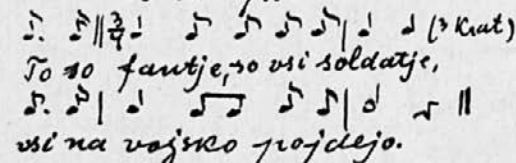 3/4 (3 krat)
To so fantje, so vsi soldatje,
vsi na vojsko pojdejo.